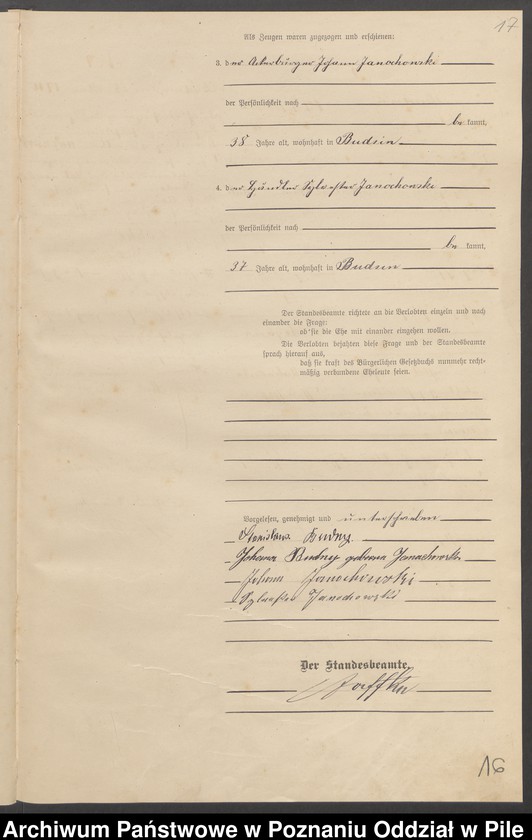 17
Als Zeugen waren zugezogen und erschienen:
3. der Ackerbürger Johann Janochowski
der Persönlichkeit nach
bekannt,
38 Jahre alt, wohnhaft in Budsin
4. der Händler Sylvester Janochowski
der Persönlichkeit nach
bekannt,
37 Jahre alt, wohnhaft in Budsin
Der Standesbeamte richtete an die Verlobten einzeln und nach
einander die Frage:
ob sie die Ehe mit einander eingehen wollen.
Die Verlobten bejahten diese Frage und der Standesbeamte
sprach hierauf aus,
daß sie kraft des Bürgerlichen Gesetzbuchs nunmehr recht-
mäßig verbundene Eheleute seien.
Vorgelesen, genehmigt und unterschrieben
Stanislaus Budny
Johanna Budny geborene Janochowska
Johann Janochowski
Sylvester Janochowski
Der Standesbeamte.
16
Archiwum Państwowe w Poznaniu Oddział w Pile